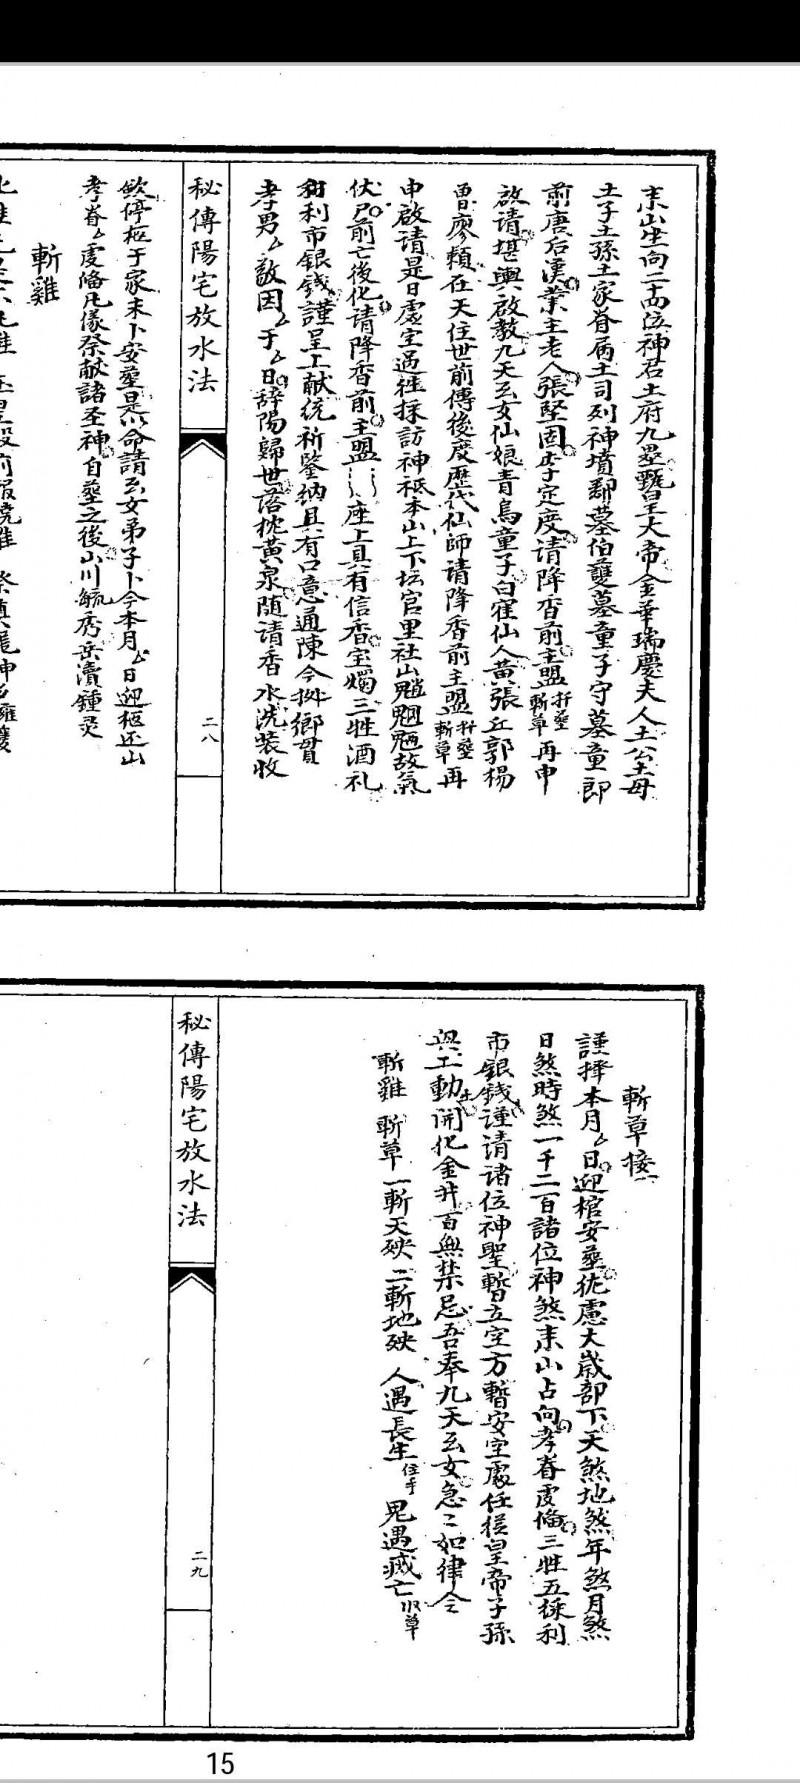 来山坐向二十四位神君土府九壘甄皇大帝金華瑞慶夫人土公土母
土子土孫土家眷屬土司列神墳鄢墓伯護墓童子守墓童郎
前唐后漢業主老人張堅固李定度請降香前主盟 扦塋 斬草 再申
啟请堪輿啟教九天玄女仙娘青烏童子白窰仙人黃張丘郭楊
曾廖賴在天住世前傳後度歷代仙師请降香前主盟 扦塋 斬草 再
申啟请是日虛空過往採訪神祇本山上下坛官里社山魈魍魎故氣
伏尸前亡後化请降香前主盟 座上具有信香宝燭三牲酒礼
利市银錢謹呈上献统祈鑒纳具有口意通陳今拠鄉貫
孝男厶敨因厶于厶日辞陽歸世落枕黄泉随请香水洗装收
秘傳陽宅放水法
二八
歛停柩于家未卜安塋是以命請玄女弟子卜今本月厶日迎柩还山
孝眷厶虔俻凡儀祭献諸圣神自塋之後山川毓秀岳瀆鍾灵
斬雞
斬草接
謹择本月厶日迎棺安塋优慮大歲部下天煞地煞年煞月煞
日煞時煞一千二百諸位神煞来山占向孝眷虔俻三牲五採利
市银錢谨请诸位神聖暫立空方暫安空處任從皇帝子孫
興工動土開化金井百無禁忌吾奉九天玄女急二如律令
斬雞 斬草一斬天殃二斬地殃 人遇長生 住手 鬼遇滅亡 收草
秘傳陽宅放水法
二九
15